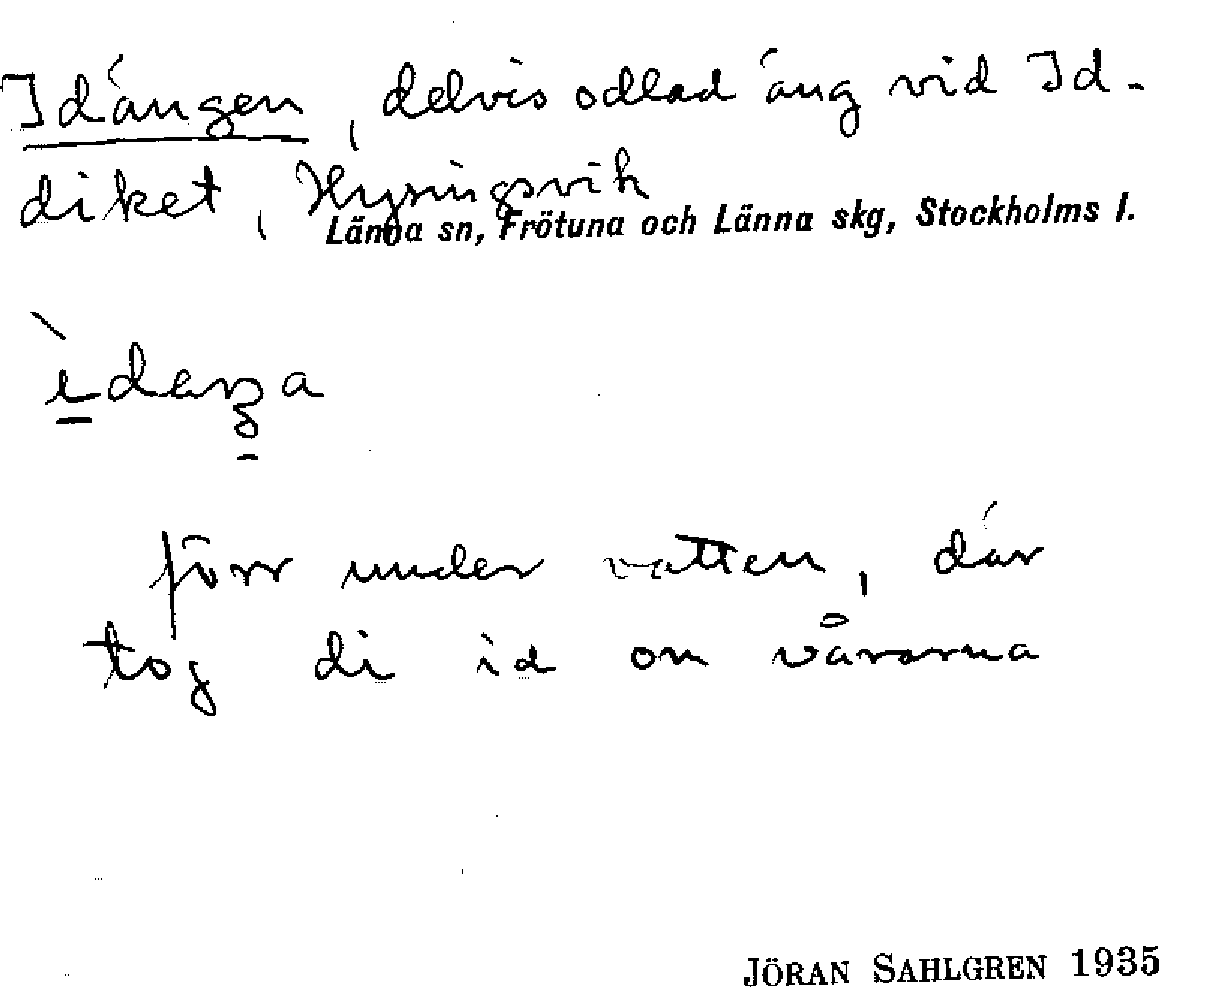 Idängen, delvis odlad äng vid Id-
diket, Hysingsvik
Länna sn, Frötuna och Länna skg, Stockholms l.
förr under vatten, där
tog di id om vårarna
JÖRAN SAHLGREN 1935